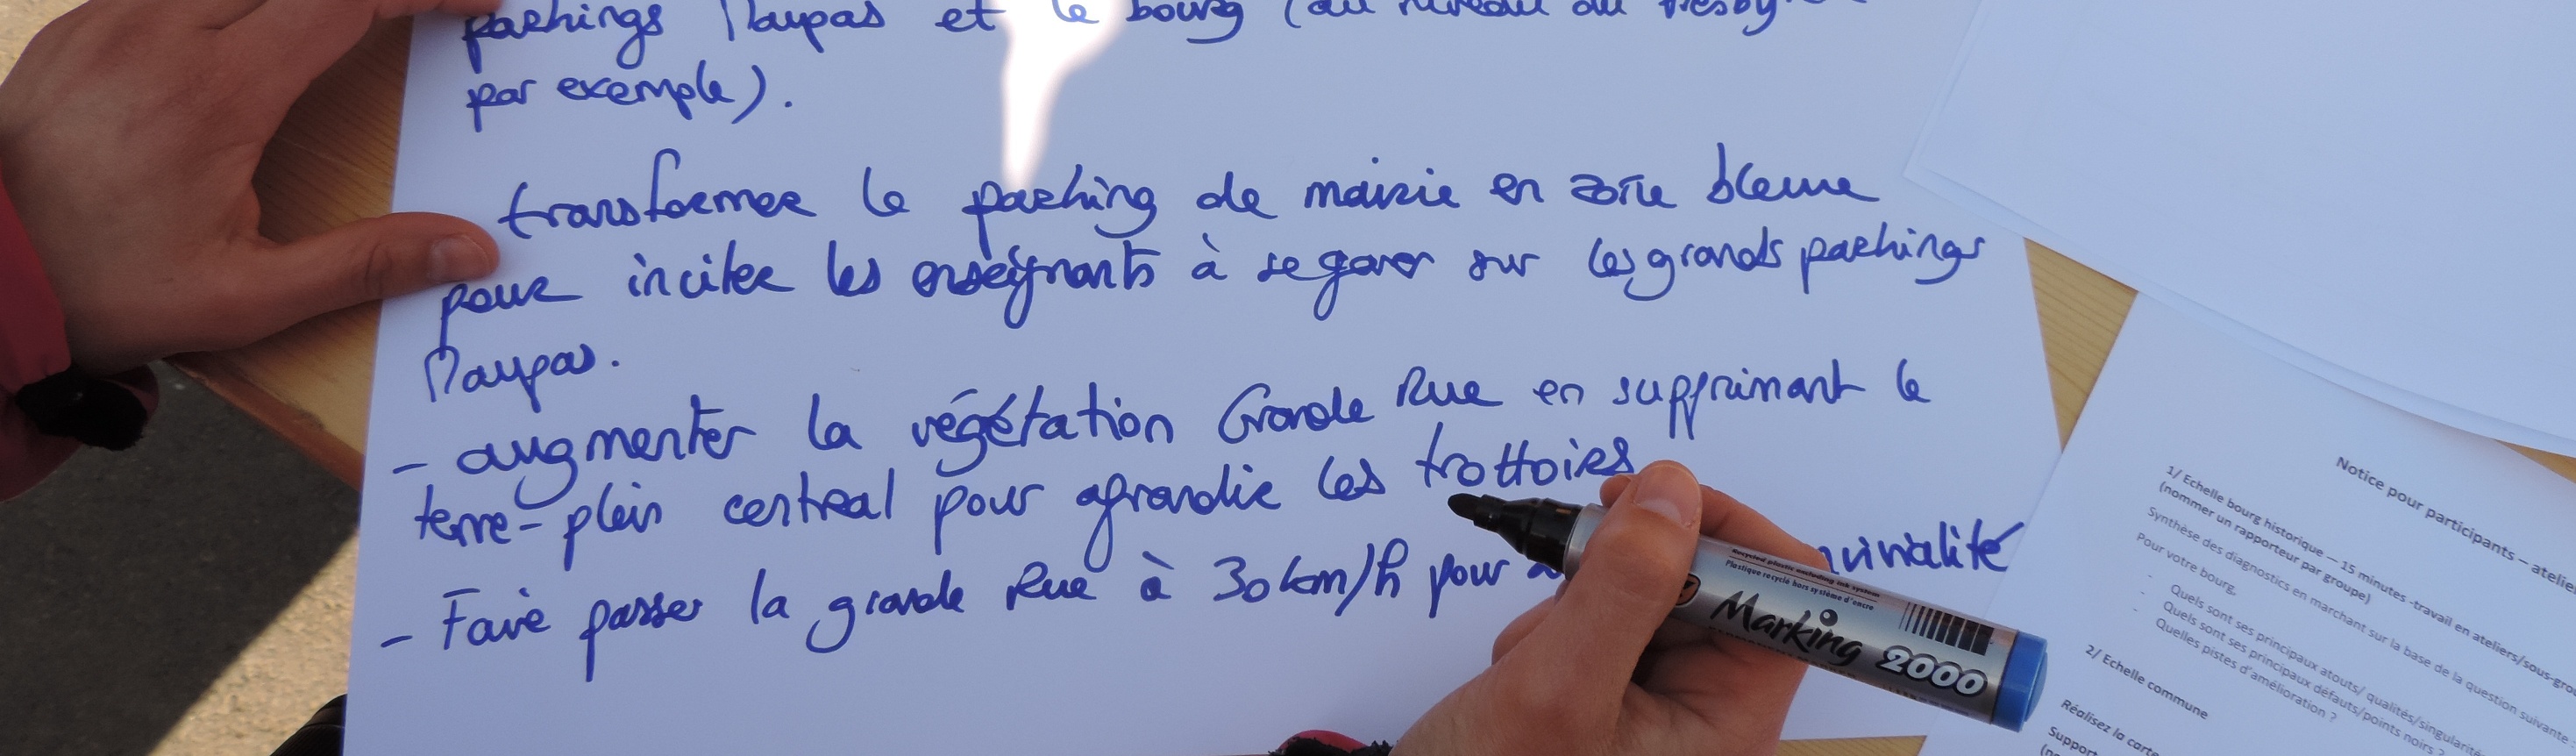 parkings Maupas et le bourg (au niveau du
par exemple).
transformer le parking de mairie en zone bleue
pour inciter les enseignants à se garer sur les grands parkings
Maupas.
- augmenter la végétation Grande Rue en supprimant le
terre-plein central pour agrandir les trottoirs
- Faire passer la grande Rue à 30 km/h pour
Recycled plastic excluding ink system
Plastique recyclé hors système d'encre
Marking 2000
Notice pour participants – atelie
1/ Echelle bourg historique – 15 minutes -travail en ateliers/sous-grou
(nommer un rapporteur par groupe)
Synthèse des diagnostics en marchant sur la base de la question suivante
Pour votre bourg,
- Quels sont ses principaux atouts/ qualités/singularité
- Quels sont ses principaux défauts/points noirs ?
Quelles pistes d'amélioration ?
2/ Echelle commune
Réalisez la carte
Support